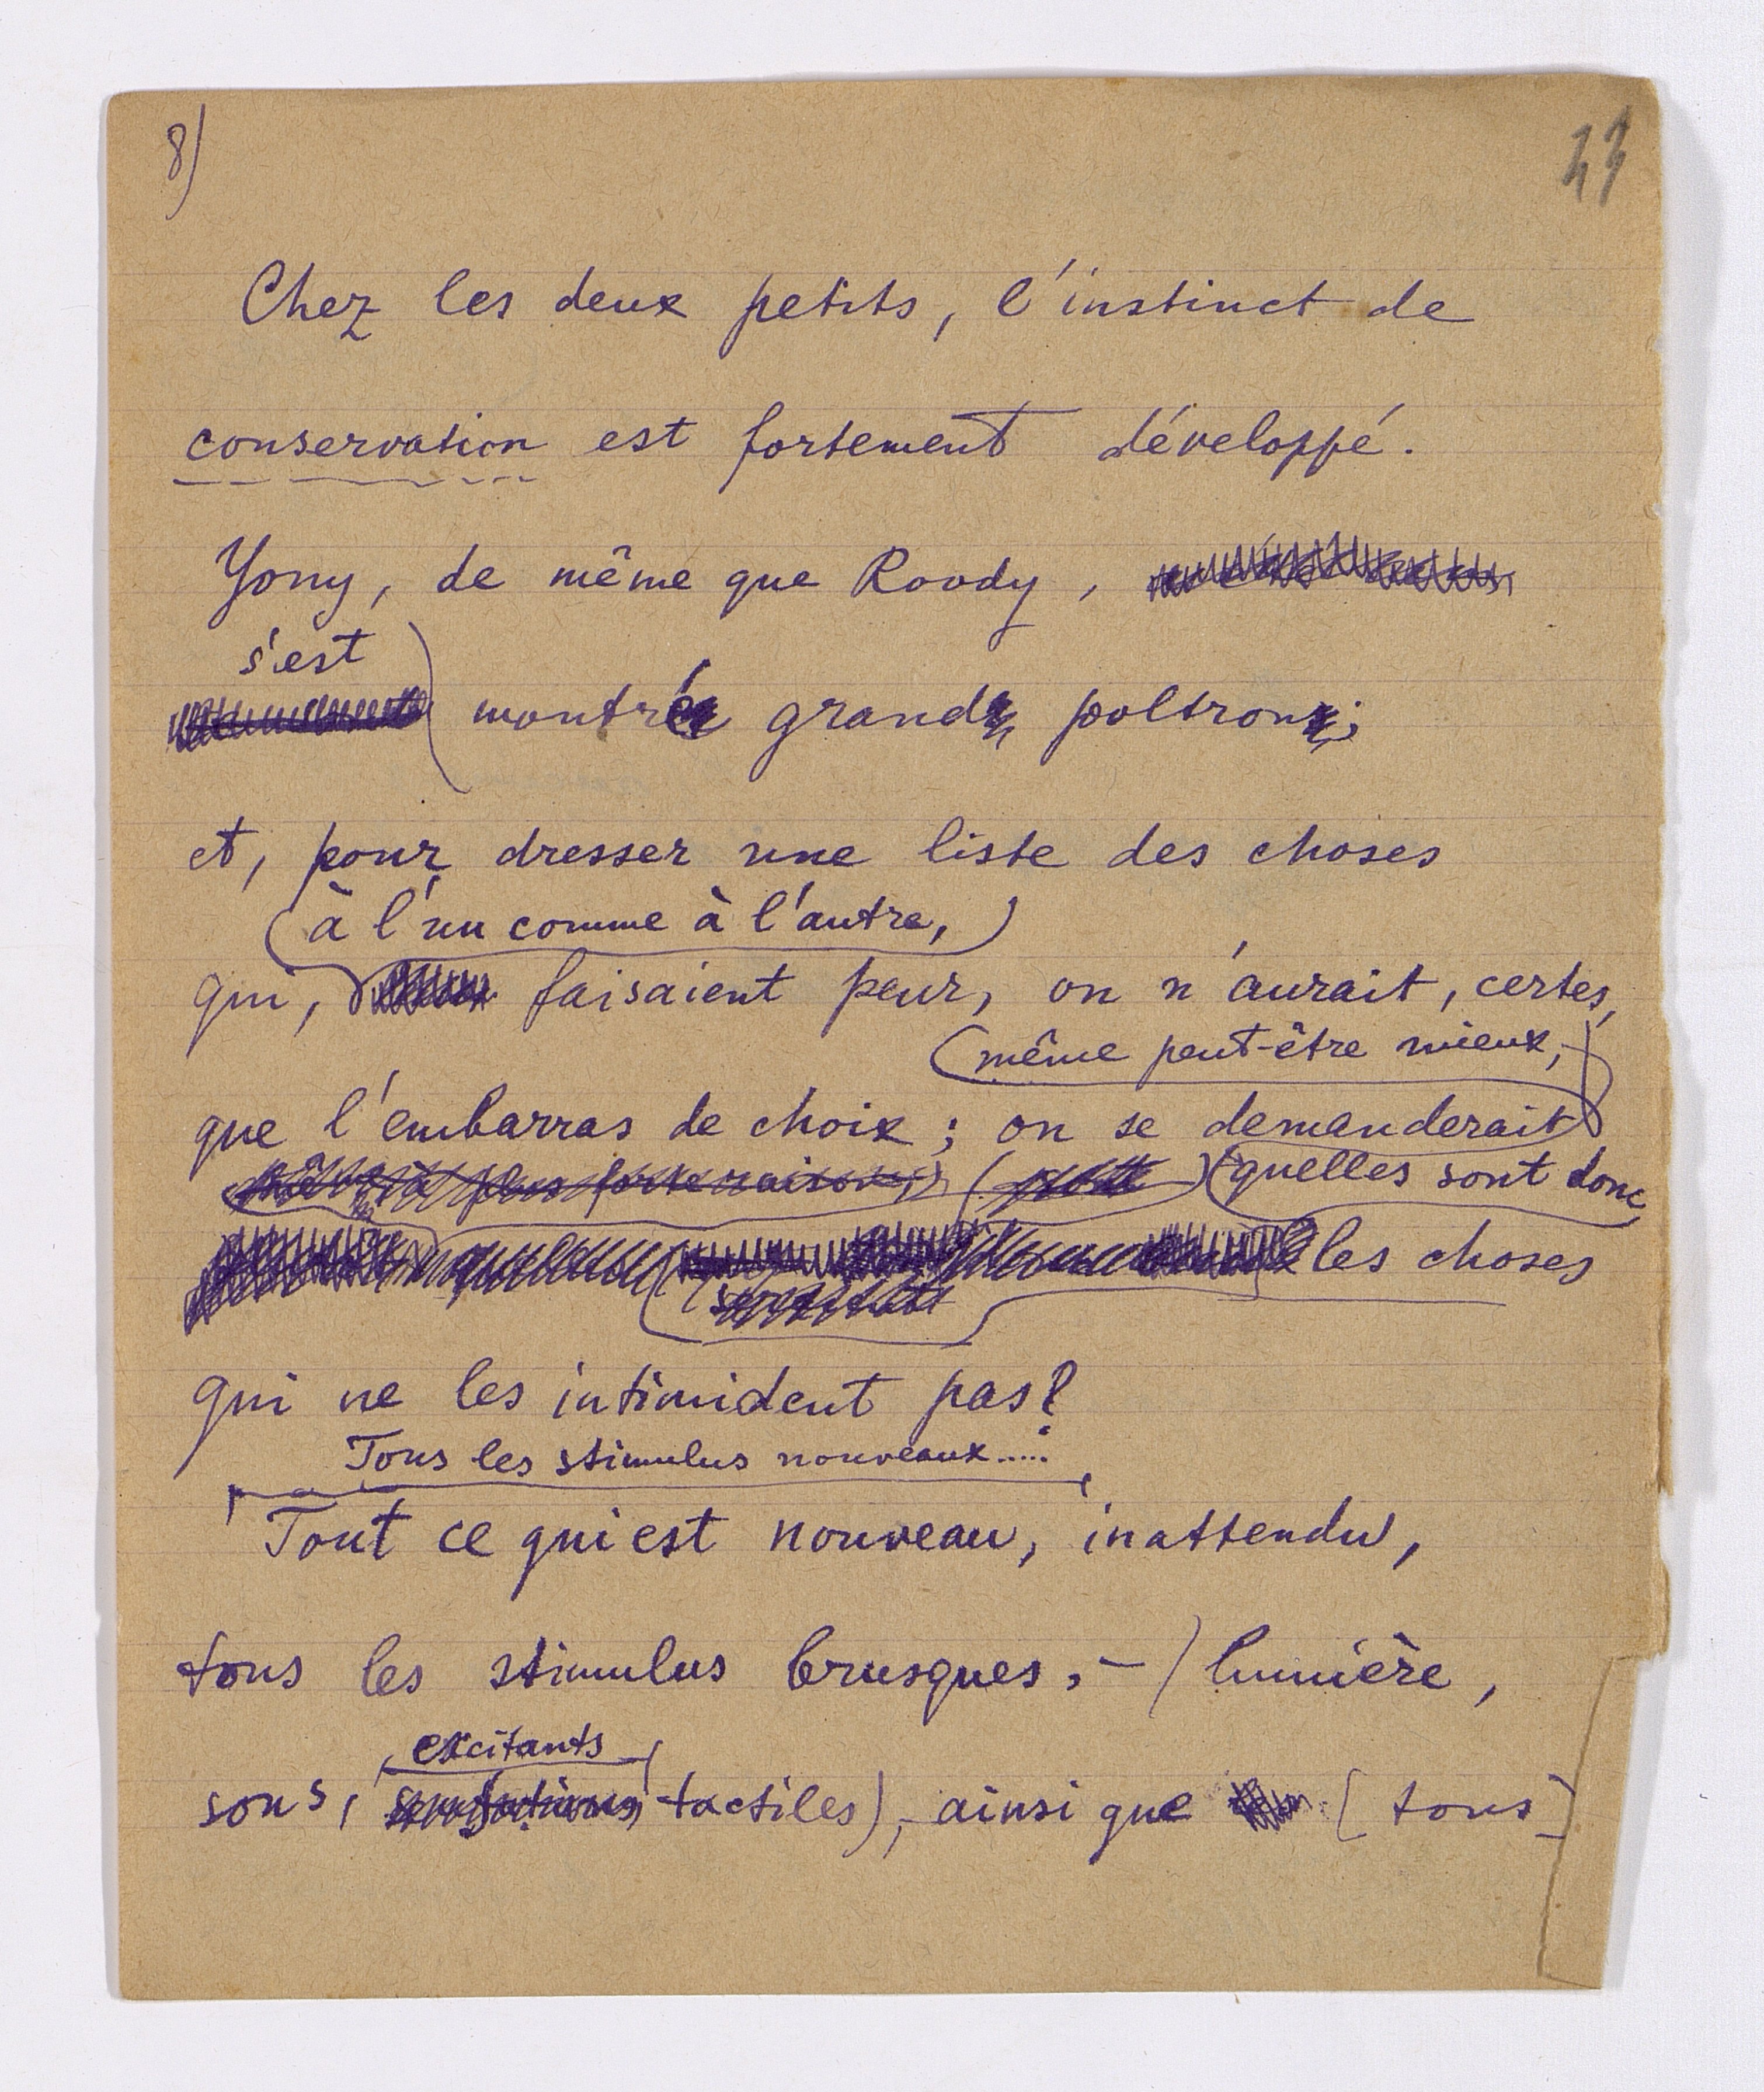 8)
Chez les deux petits, l'instinct de
conservation est fortement développé.
Yony, de même que Roody,
s'est
montré grand poltron;
et, pour dresser une liste des choses
(à l'un comme à l'autre,)
qui, faisaient peur, on n'aurait, certes,
(même peut-être mieux,)
que l'embarras de choix; on se demanderait
(quelles sont donc
les choses
qui ne les intimident pas?
Tous les stimulus nouveaux.....
Tout ce qui est nouveau, inattendu,
tous les stimulus brusques, - (lumière,
excitants
sons, tactiles), ainsi que [tous]